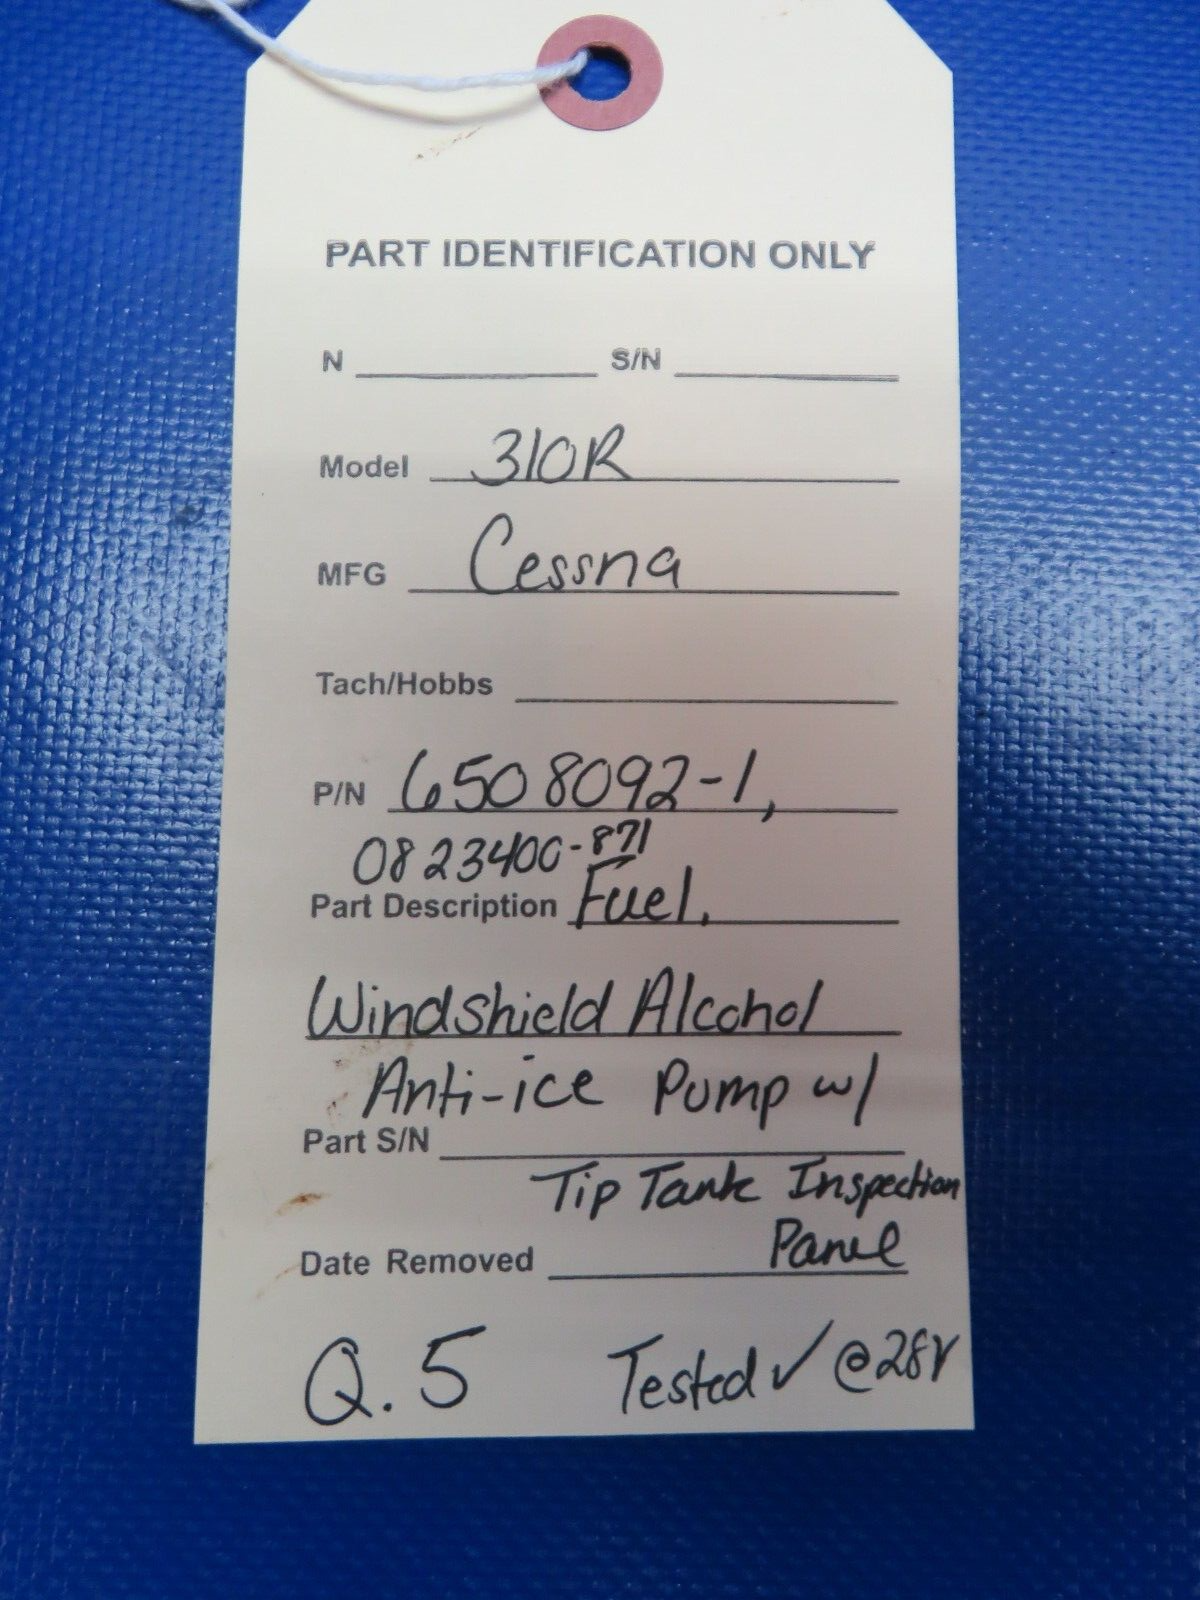 PART IDENTIFICATION ONLY
N S/N
Model 310R
MFG Cessna
Tach/Hobbs
P/N 6508092-1,
0823400-871
Part Description Fuel,
Windshield Alcohol
Anti-ice Pump w/
Part S/N
Tip Tank Inspection
Panel
Date Removed
Q.5 Tested ✓ @28V